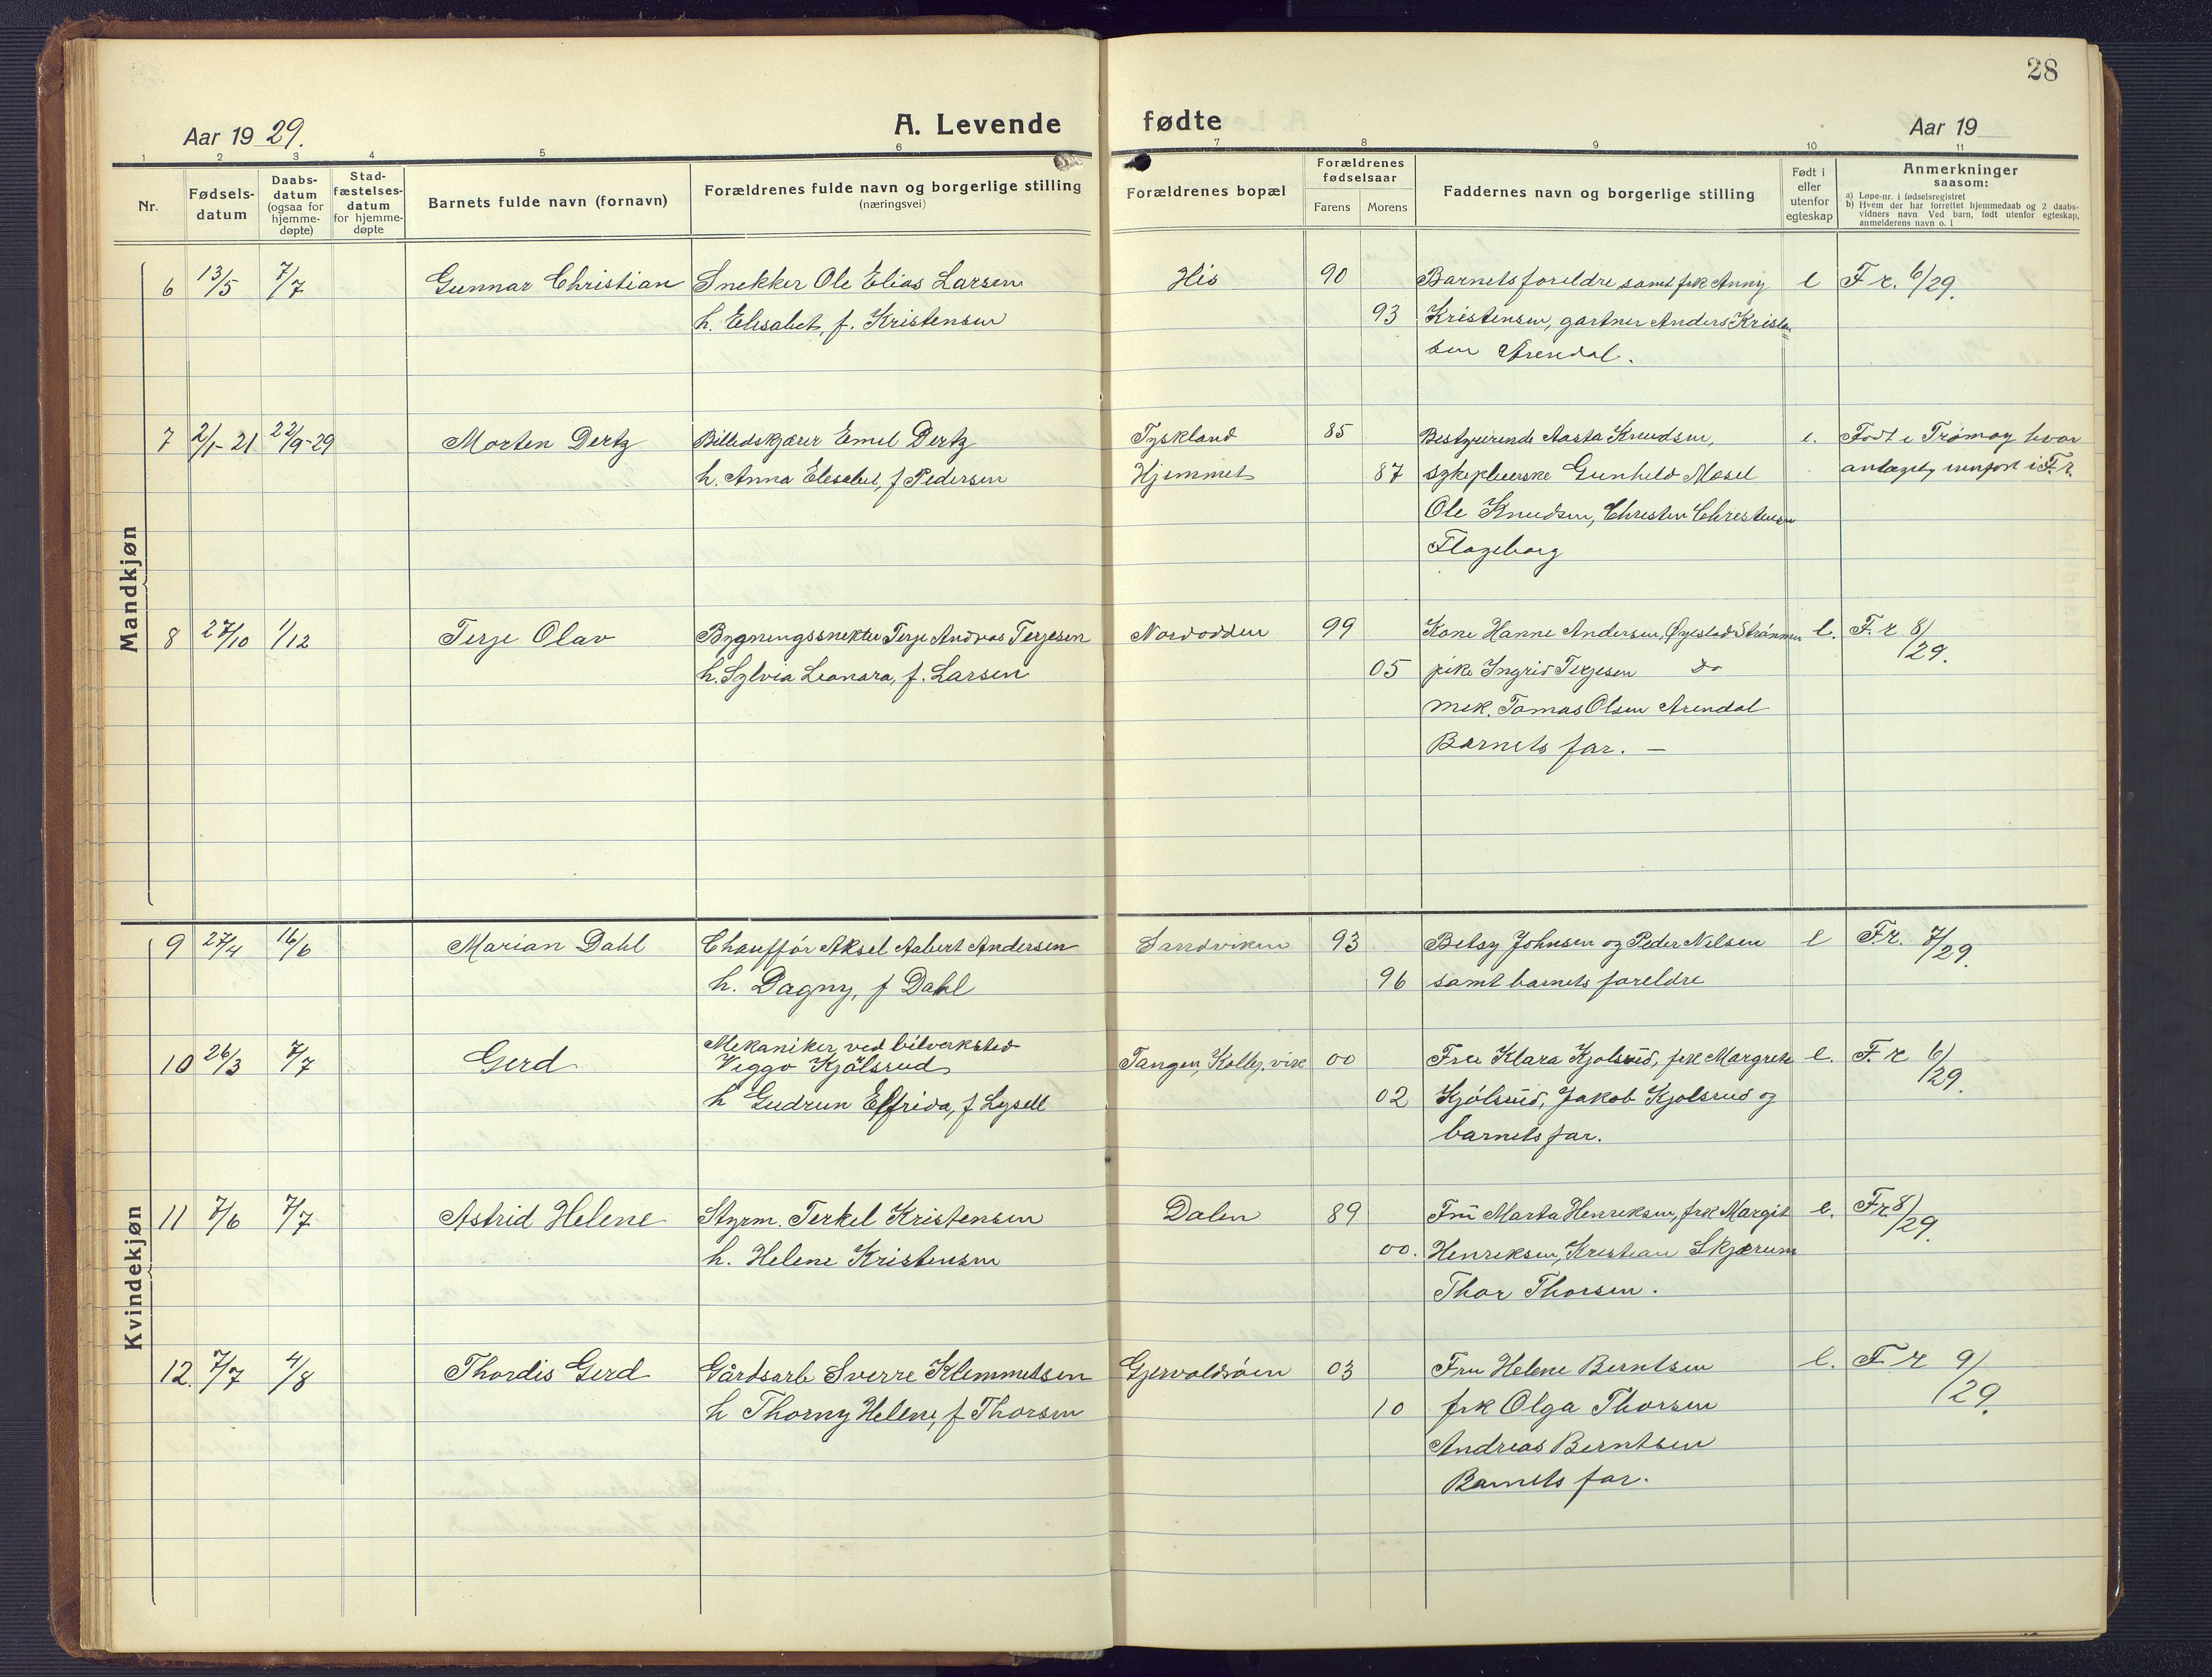 28
Aar 19 29.
A. Levende
fødte
Aar 19
1 2 3 4 5 6 7 8 9 10 11
Nr.
Fødsels-
datum
Daabs-
datum
(ogsaa for
hjemme-
døpte)
Stad-
fæstelses-
datum
for hjemme-
døpte
Barnets fulde navn (fornavn)
Forældrenes fulde navn og borgerlige stilling
(næringsvei)
Forældrenes bopæl
Forældrenes
fødselsaar
Farens Morens
Faddernes navn og borgerlige stilling
Født i
eller
utenfor
egteskap
Anmerkninger
saasom:
a) Løpe-nr. i fødselsregistret
b) Hvem der har forrettet hjemmedaab og 2 daabs-
vidners navn. Ved barn, født utenfor egteskap,
anmelderens navn o. l
Mandkjøn
6 13/5 7/7 Gunnar Christian Snekker Ole Elias Larsen His 90 Barnets foreldre samt frk Anny e F r. 6/29.
h. Elisabet, f. Kristensen 93 Kristensen, gartner Anders Kristen
sen Arendal.
7 2/1-21 22/9-29 Morten Dertz Billedskjærer Emil Dertz Tyskland 85 Bestyrerinde Aasta Knudsen, e. Født i Tromøy hvor
h. Anna Elisabet, f Pedersen Hjemmet 87 sykepleierske Gunhild Mosel antagelig innført i F.r.
Ole Knudsen, Christen Christensen
Flageborg
8 27/10 1/12 Terje Olav Bygningssnekker Terje Andreas Terjesen Nordodden 99 Kone Hanne Andersen, Øyestad Strømmen e. F. r 8/29.
h. Sylvia Leonara, f. Larsen 05 pike Ingrid Terjesen do
mek. Tomas Olsen Arendal
Barnets far. —
Kvindekjøn
9 27/4 16/6 Marian Dahl Chauffør Aksel Aabert Andersen Sandviken 93 Betsy Johnsen og Peder Nilsen e F.r. 7/29.
h. Dagny, f Dahl 96 samt barnets foreldre
10 26/3 7/7 Gerd Mekaniker ved bilverksted
Viggo Kjølsrud Tangen, Kolbj. vik 00 Fru Klara Kjolsrud, frk Margrete e. F. r 6/29.
h Gudrun Elfrida, f Lysell 02 Kjølsrud, Jakob Kjolsrud og
barnets far.
11 7/6 7/7 Astrid Helene Styrm. Terkel Kristensen Dalen 89 Fru Marta Henriksen, frk Margit e. F r 8/29.
h. Helene Kristensen 00. Henriksen, Kristian Skjærum
Thor Thorsen.
12. 7/7 4/8 Thordis Gerd Gårdsarb Sverre Klemmetsen Gjervoldsøen 03 Fru Helene Berntsen e. F r 9/29.
h Thorny Helene, f Thorsen 10 frk Olga Thorsen
Andreas Berntsen
Barnets far.